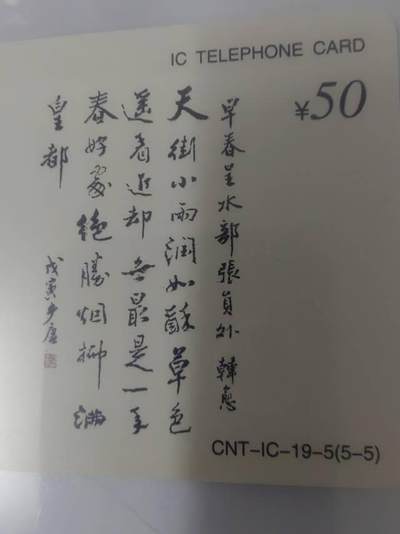 IC TELEPHONE CARD
¥50
早春呈水部張員外 韓愈
天街小雨潤如酥草色
遥看近却無最是一年
春好處絕勝烟柳滿
皇都
戊寅
CNT-IC-19-5(5-5)